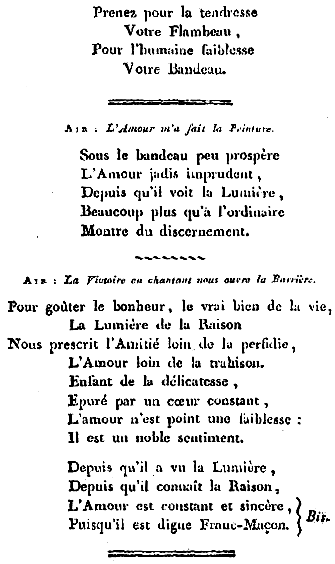 Prenez pour la tendresse
Votre Flambeau,
Pour l'humaine faiblesse
Votre Bandeau.
AIR : L'Amour m'a fait la Peinture.
Sous le bandeau peu prospère
L'Amour jadis imprudent,
Depuis qu'il voit la Lumière,
Beaucoup plus qu'à l'ordinaire
Montre du discernement.
AIR : La Victoire en chantant nous ouvre la Barrière.
Pour goûter le bonheur, le vrai bien de la vie,
La Lumière de la Raison
Nous prescrit l'Amitié loin de la perfidie,
L'Amour loin de la trahison.
Enfant de la délicatesse,
Epuré par un cœur constant,
L'amour n'est point une faiblesse :
Il est un noble sentiment.
Depuis qu'il a vu la Lumière,
Depuis qu'il connaît la Raison,
L'Amour est constant et sincère,
Puisqu'il est digne Franc-Maçon. } Bis.